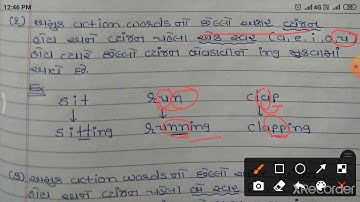 12:46 PM
(૨) અમુક action words નો છેલ્લો અક્ષર વ્યંજન
હોય અને વ્યંજન પહેલા એક સ્વર (a, e, i, o, u)
હોય ત્યારે છેલ્લો વ્યંજન બેવડાવીને ing મુકવામાં
આવે છે.
Ex
sit run clap
sitting running clapping
(૩) અમુક action words નો છેલ્લો
હોય અને વ્યંજન પહેલા બે સ્વર
XRecorder